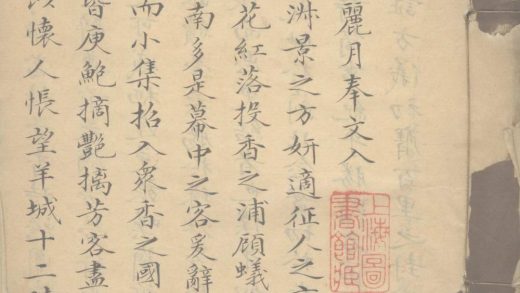 麗月奉文入
淑景之方妍適征人之
花紅落投香之浦顧蟻
南多是幕中之客爰辭
而小集招入衆香之國
皆庾鮑摘艷摛芳客盡
懷人悵望羊城十二
上海圖
書館